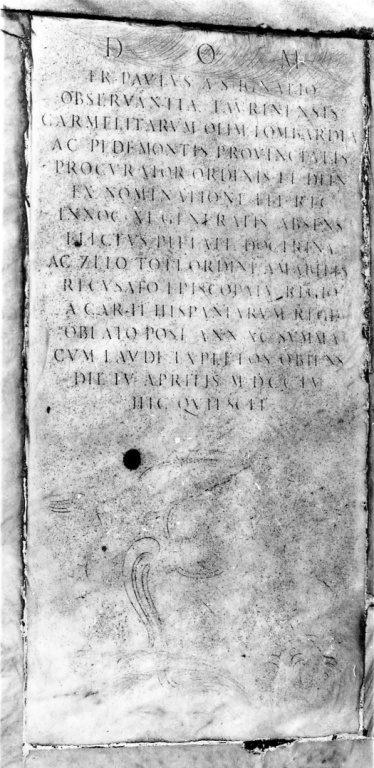 D O M
FR PAVLVS A S IGNATIO
OBSERVANTIÆ TAVRINENSIS
CARMELITARVM OLIM LOMBARDIÆ
AC PEDEMONTIS PROVINCIALIS
PROCVRATOR ORDINIS ET DEIN
EX NOMINATIONE FEL REC
INNOC XI GENERALIS ABSENS
ELECTVS PIETATE DOCTRINA
AC ZELO TOTI ORDINI AMABILIS
RECVSATO EPISCOPATV REGIO
A CAR II HISPANIARVM REGE
OBLATO POST ANN SVMMA
CVM LAVDE EXPLETOS OBIENS
DIE IV APRILIS M DCC IV
HIC QVIESCIT